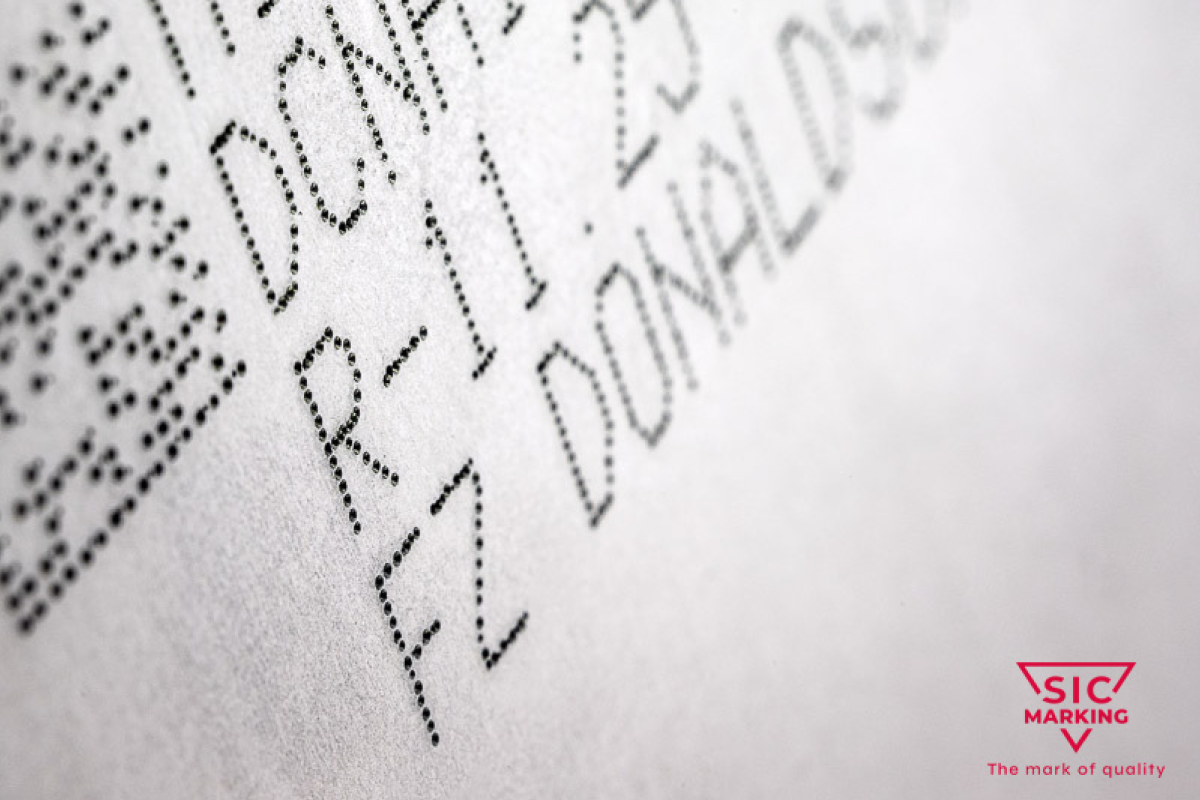 DCN
R-11 25
FZ DONALDSO
SIC
MARKING
The mark of quality